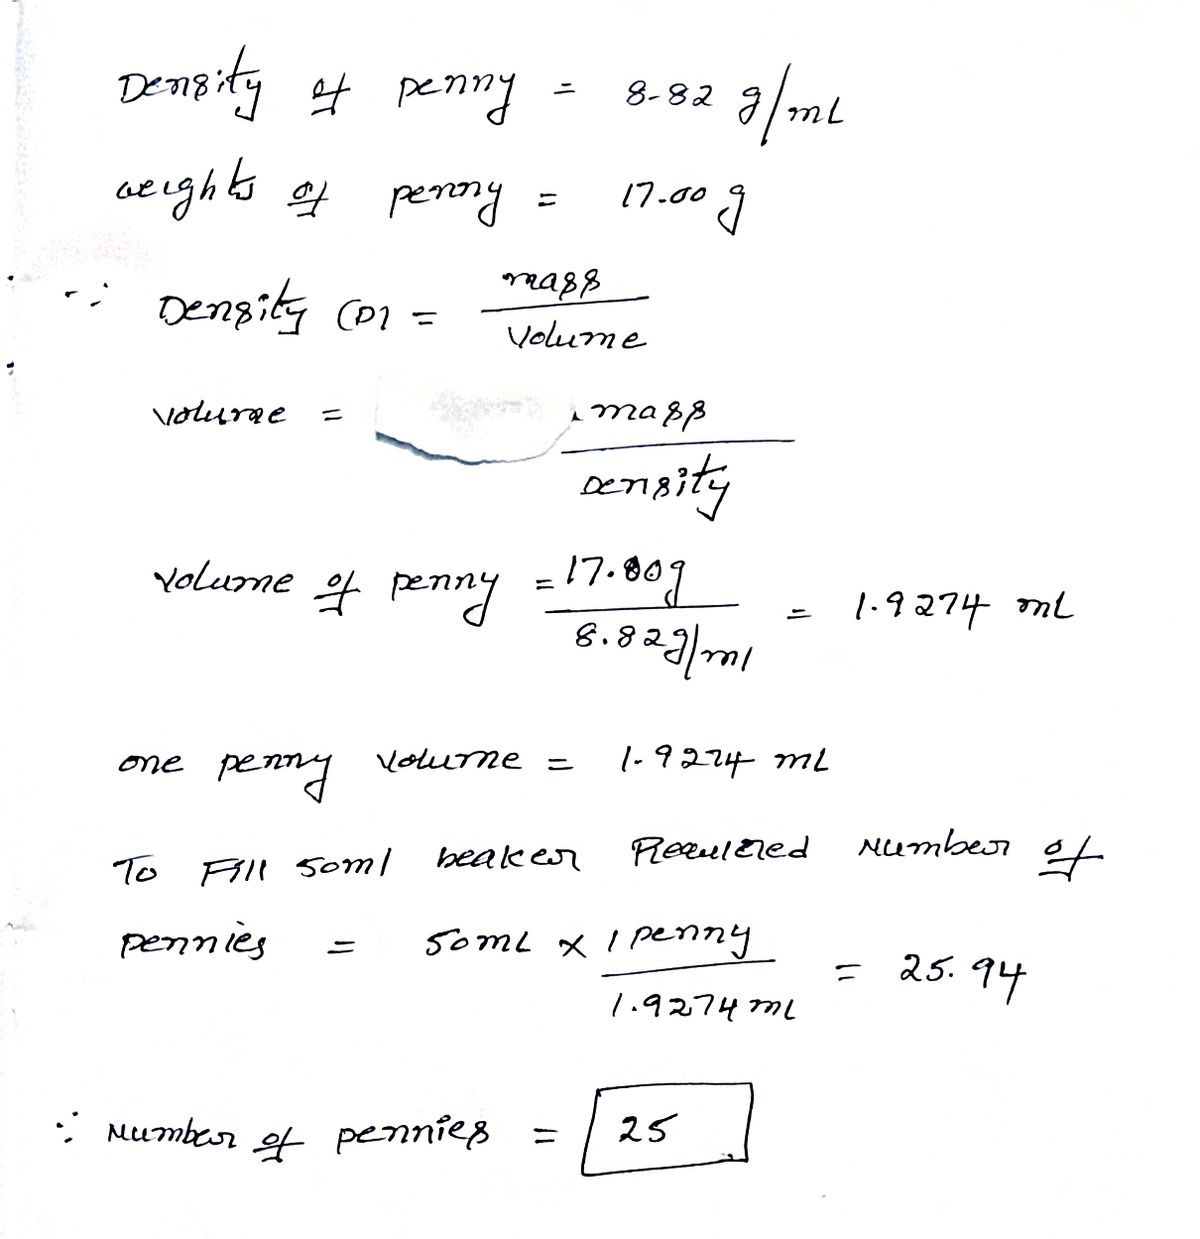 Density of penny = 8.82 g/mL
weights of penny = 17.00 g
∵ Density (D) = mass / Volume
volume = mass / Density
volume of penny = 17.00g / 8.82g/ml = 1.9274 mL
one penny volume = 1.9274 mL
To Fill 50ml beaker Required Number of
pennies = 50mL × 1 penny / 1.9274 mL = 25.94
∴ Number of pennies = 25